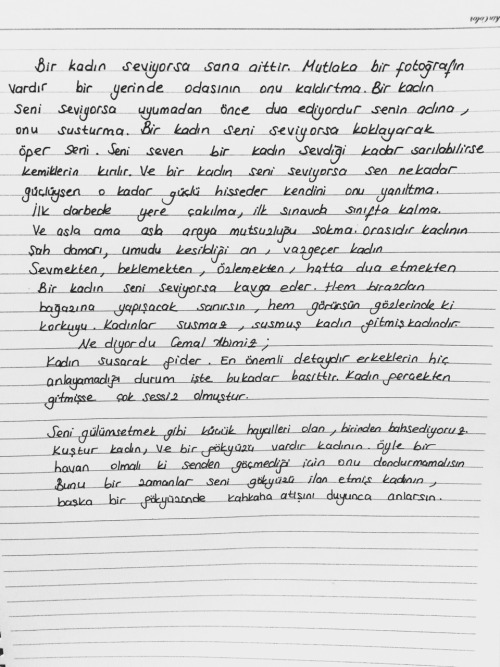 Bir kadın seviyorsa sana aittir. Mutlaka bir fotoğrafın
vardır bir yerinde odasının onu kaldırtma. Bir kadın
seni seviyorsa uyumadan önce dua ediyordur senin adına,
onu susturma. Bir kadın seni seviyorsa koklayarak
öper seni. Seni seven bir kadın sevdiği kadar sarılabilirse
kemiklerin kırılır. Ve bir kadın seni seviyorsa sen nekadar
güçlüysen o kadar güçlü hisseder kendini onu yanıltma.
İlk darbede yere çakılma, ilk sınavda sınıfta kalma.
Ve asla ama asla araya mutsuzluğu sokma. Orasıdır kadının
Şah damarı, umudu kesildiği an, vazgeçer kadın
Sevmekten, beklemekten, özlemekten, hatta dua etmekten
Bir kadın seni seviyorsa kavga eder. Hem birazdan
boğazına yapışacak sanırsın, hem görürsün gözlerinde ki
korkuyu. Kadınlar susmaz, susmuş kadın gitmiş kadındır.
Ne diyordu Cemal Abimiz;
Kadın susarak gider. En önemli detaydır erkeklerin hiç
anlayamadığı durum işte bukadar basittir. Kadın gerçekten
gitmişse çok sessiz olmuştur.
Seni gülümsetmek gibi küçük hayalleri olan, birinden bahsediyoruz.
Kuştur kadın, ve bir gökyüzü vardır kadının. Öyle bir
havan olmalı ki senden göçmediği için onu dondurmamalısın
Bunu bir zamanlar seni gökyüzü ilan etmiş kadının,
başka bir gökyüzünde kahkaha atışını duyunca anlarsın.